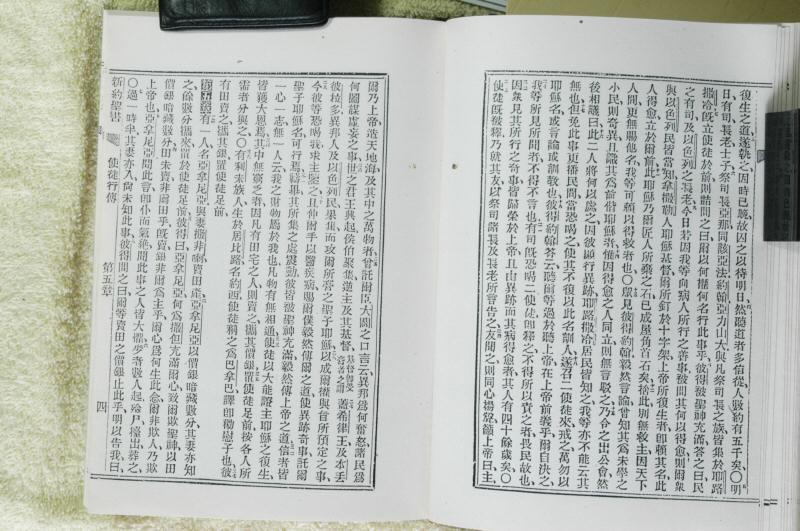 復生之道遂執之因時已晩故囚之以待明日然聽道者多信從人數約有五千矣○明
日有司長老士子祭司長亞那同該亞法約翰亞力山大與凡祭司長之族皆集於耶路
撒冷旣立使徒於前則詰問之曰爾以何權何名行此事乎彼得被聖神充滿答之曰民
之有司及以色列之長老今日若因我等向病人所行之善事被問其何以得愈則爾衆
與以色列民皆當知拿撒勒人耶穌基督爾所釘於十字架上帝所復生者卽賴其名此
人得愈立於爾前此耶穌乃爾匠人所棄之石已成屋角首石矣捨此別無救主因天下
人間更無賜他名我等可賴以得救者也○衆見彼得約翰毅然言論曾知其爲未學之
小民則奇異且識其爲前偕耶穌者惟因得愈之人同立則無言駁之乃令之出公會然
後相議曰此二人將何以處之因彼顯行異跡耶路撒冷居民皆知之我等亦不能云其
無也但免此事更播民間當恐喝之使其不復以此名訓人遂召二使徒來戒之萬勿以
耶穌名或言論或訓敎也彼得約翰答云聽爾等過於聽上帝在上帝前義乎爾自決之
我等所見所聞者不得不言也有司旣恐喝二使徒卽釋之不得所以責之者畏民故也
因衆見其所行之奇事皆歸榮於上帝且由異跡而其病得愈者其人有四十餘歲矣○
使徒旣被釋乃就其友以祭司諸長及長老所言告之友聞之則同心揚聲籲上帝曰主
爾乃上帝造天地海及其中之萬物者曾託爾臣大闢之口言云異邦爲何奮怒諸民爲
何圖謀虛妄之事世之君王興起侯伯聚集逆主及其基督 基督卽受膏者之謂 蓋希律王及本丟
彼拉多異邦人及以色列民果集而攻爾所膏之聖子耶穌以成爾權與旨所預定之事
今彼等恐喝我求主鑒之且伸爾手以醫疾病賜爾僕毅然傳爾之道使異跡奇事託爾
聖子耶穌名可行焉禱畢其所集之處震動彼皆被聖神充滿毅然傳上帝之道信者皆
一心一志無一人云我之財物屬於我也凡物有無相通使徒以大能證主耶穌之復生
皆獲大恩焉其中無窮乏者因凡有田宅之人則賣之攜其價銀置使徒足前按各人所
需者分與之○有利未族人生於居比路名約西使徒稱之爲巴拿巴譯卽勸慰子也彼
有田賣之攜其銀置使徒足前
第五章有一人名亞拿尼亞與妻撒非喇賣田產亞拿尼亞以價銀暗藏數分其妻亦知
之餘數分攜來置於使徒足前彼得曰亞拿尼亞何爲撒但充滿爾心致爾欺聖神以田
價銀暗藏數分田未賣非爾田乎旣賣銀非爾爲主乎爾心爲何生此念爾非欺人乃欺
上帝也亞拿尼亞聞此言卽仆而氣絕聞此事之人皆大懼少者數人起殮尸擡出葬之
○過一時半其妻亦入尙未知此事彼得問之曰爾等賣田之價銀止此乎明以告我曰
新約聖書 使徒行傳 第五章 四